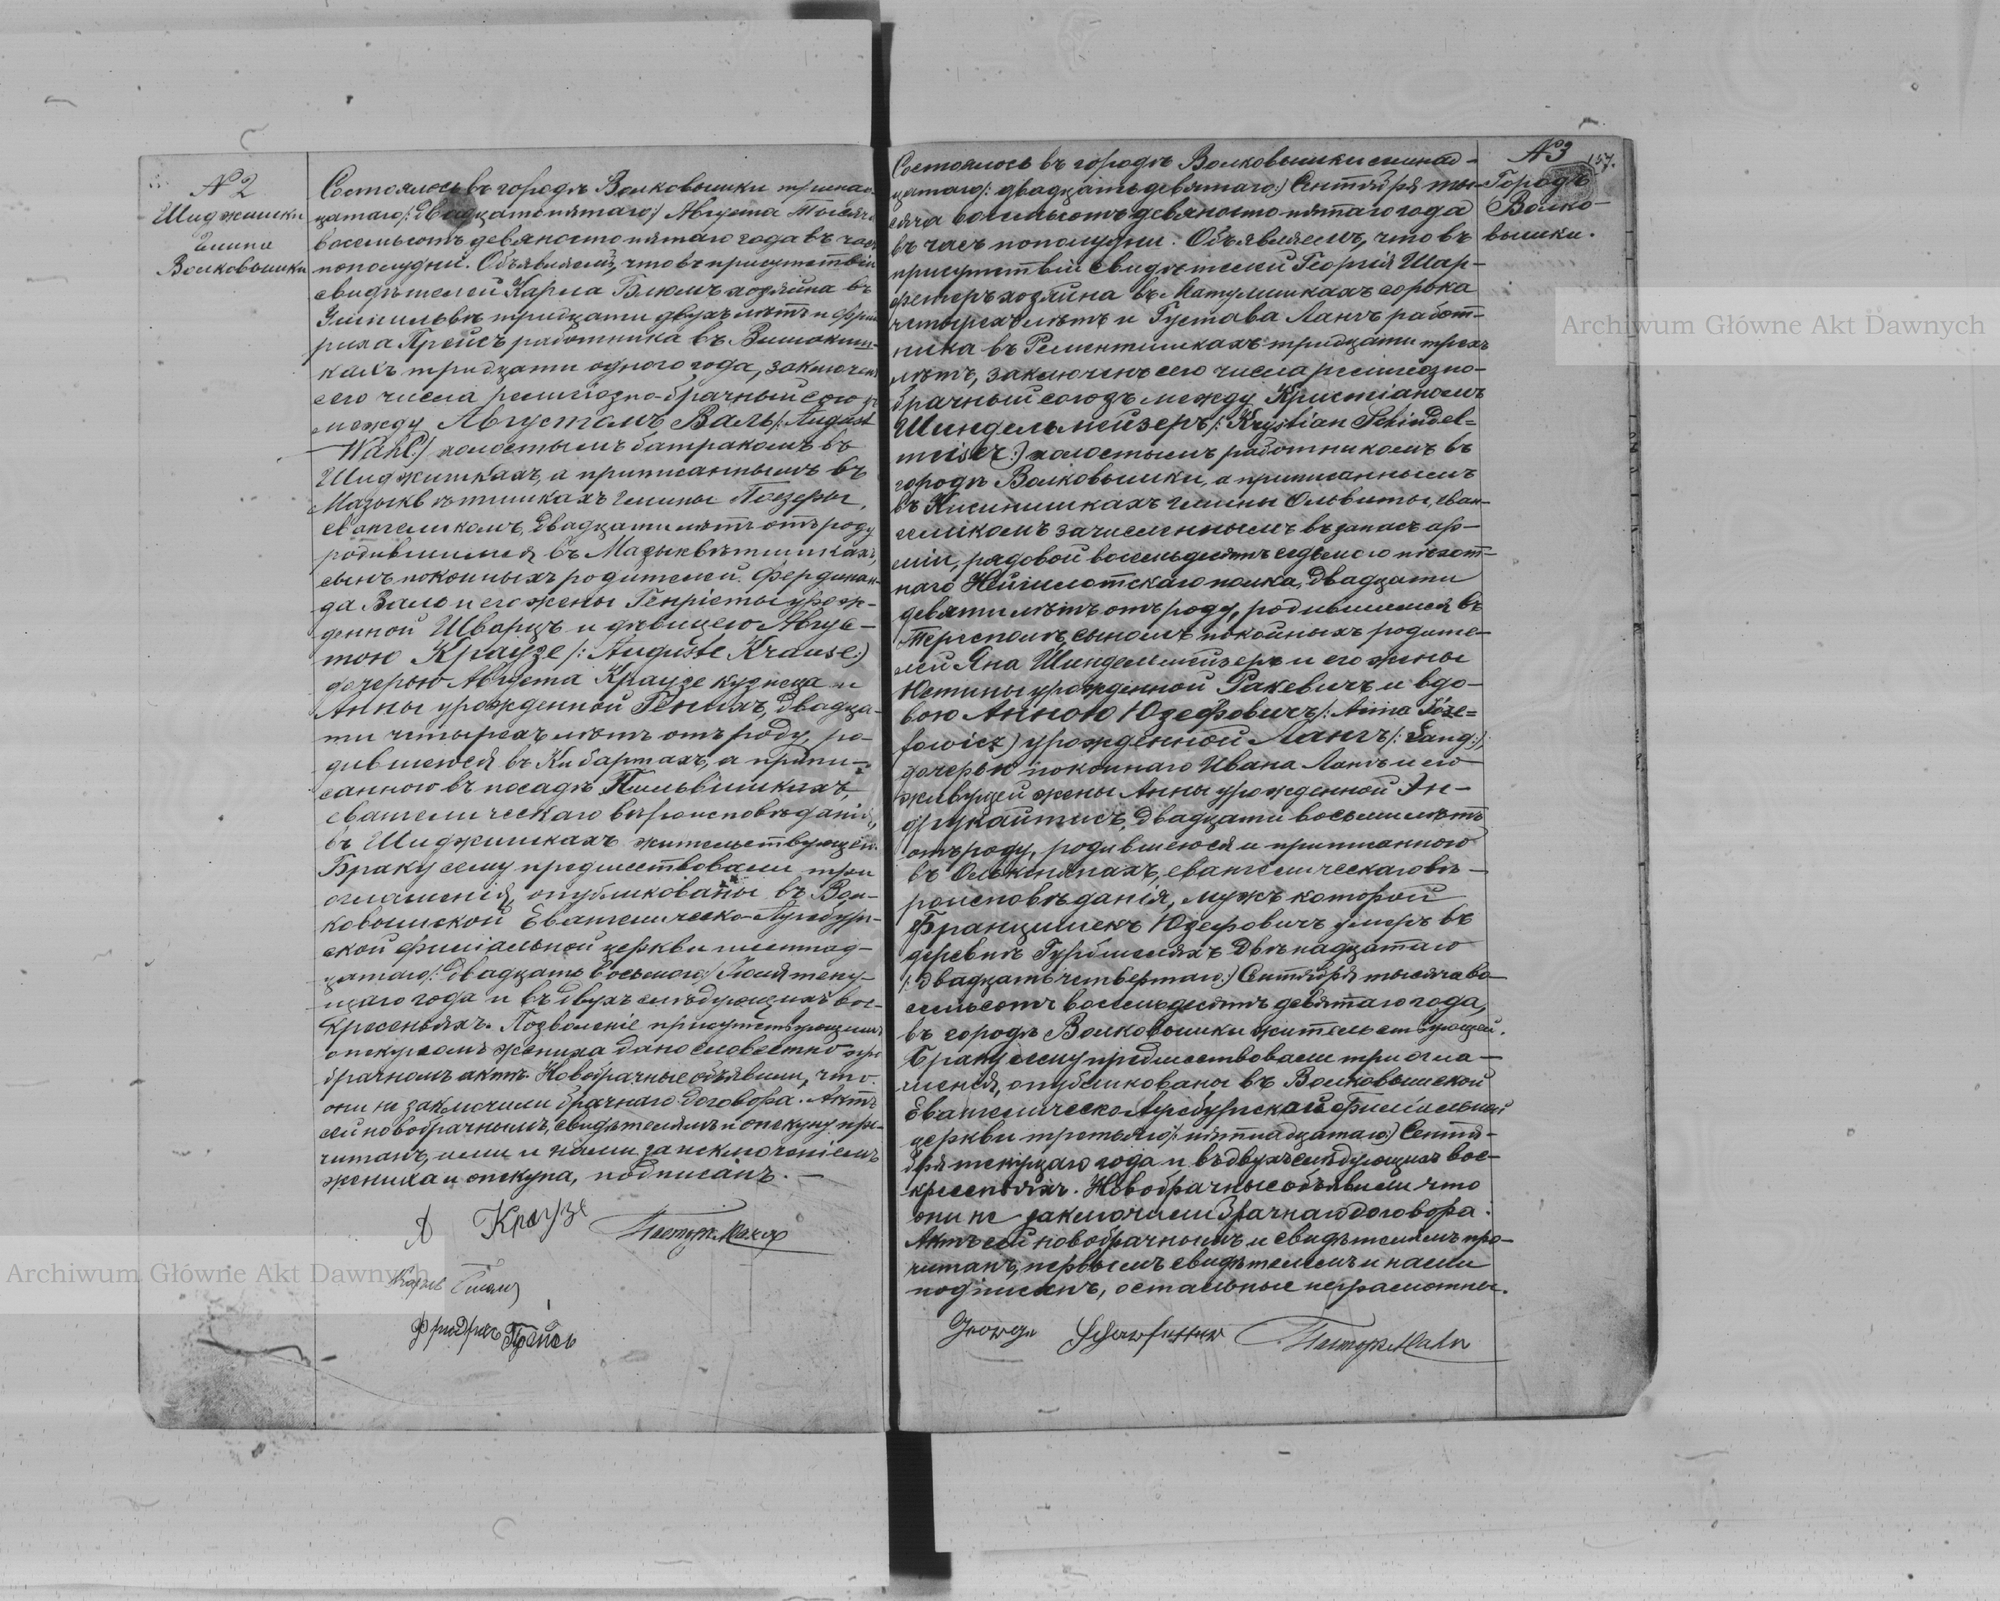 № 2
Шиджишки
Гмина
Волковышки
Состоялось въ городѣ Волковышки тринад-
цатаго /: двадцать пятаго :/ Августа тысяча
восемьсотъ девяносто пятаго года въ часъ
пополудни. Объявляемъ, что въ присутствіи
свидѣтелей Карла Блюмъ хозяйна въ
тридцати двухъ лѣтъ и Фрид
риха Прейсъ работника въ
кахъ тридцати одного года, заключенъ
сего числа религіозно-брачный союзъ
между Августомъ Валь /: August
Wahl :/ холостымъ батракомъ въ
Шиджишкахъ, а приписаннымъ въ
Мазыкветишкахъ гмины Поезеры,
евангеликомъ, двадцати лѣтъ отъ роду
родившимся въ Мазыкветишкахъ,
сынъ покойныхъ родителей Фердинан-
да Валь и его жены Генріеты урож-
денной Шварцъ и дѣвицею Авгус-
тою Краузе /: Auguste Krause :)
дочерью Августа Краузе кузнеца и
Анны урожденной двадца-
ти четырехъ лѣтъ отъ роду, ро-
дившеюся въ Кибартахъ, а припи-
санною въ посадѣ Пильвишкахъ,
евангелическаго вѣроисповѣданія,
въ Шиджишкахъ жительствующей.
Браку сему предшествовали три
оглашенія, опубликованы въ Вол-
ковышской Евангелическо-Аугсбург-
ской филіальной церкви шестнад-
цатаго /: двадцать восьмого :/ Іюля теку-
щаго года и въ двухъ слѣдующихъ вос-
кресеньяхъ. Позволеніе присутствующимъ
опекуномъ жениха дано словестно при
брачномъ актѣ. Новобрачные объявили, что
они не заключили брачнаго договора. Актъ
сей новобрачнымъ, свидѣтелямъ и опекуну про-
читанъ, ими и нами за исключеніемъ
жениха и опекуна, подписанъ. —
А Краузе Пасторъ
Карлъ Блюмъ
Фридрихъ Прейсъ
№ 3
157.
Городъ
Волко-
вышки.
Состоялось въ городѣ Волковышки семнад-
цатаго /: двадцать девятаго :) Сентября ты-
сяча восемьсотъ девяносто пятаго года
въ часъ пополудни. Объявляемъ, что въ
присутствіи свидѣтелей Георгія Шар-
фетеръ хозяйна въ Матулишкахъ сорока
четырехъ лѣтъ и Густава Лангъ работ-
ника въ Рементишкахъ тридцати трехъ
лѣтъ, заключенъ сего числа религіозно-
брачный союзъ между Кристіаномъ
Шиндельмейзеръ /: Krystian Schindel=
meiser :) холостымъ работникомъ въ
городѣ Волковышки, а приписаннымъ
въ Кисинишкахъ гмины Ольвиты, еван-
геликомъ зачисленнымъ въ запасъ ар-
міи, рядовой восемьдесятъ седьмого пѣхот-
наго Нейшлотскаго полка, двадцати
девяти лѣтъ отъ роду, родившимся въ
Тересполѣ, сыномъ покойныхъ родите-
лей Яна Шиндельмейзеръ и его жены
Юстины урожденной Ракевичъ и вдо-
вою Анною Юзефовичъ /: Anna Józe=
fowicz) урожденной Лангъ /: Lang :),
дочерью покойнаго Ивана Лангъ и его
живущей жены Анны урожденной Эн-
друкайтисъ, двадцати восьми лѣтъ
отъ роду, родившеюся и приписанною
въ евангелическаго вѣ-
роисповѣданія, мужъ которой
Францишекъ Юзефовичъ умеръ въ
деревнѣ двѣнадцатаго
/: двадцать четвертаго :) Сентября тысяча во-
семьсотъ восемьдесятъ девятаго года,
въ городѣ Волковышки жительствующей.
Браку сему предшествовали три огла-
шенія, опубликованы въ Волковышской
Евангелическо Аугсбургской филіальной
церкви третьяго /: пятнадцатаго :) Сентя-
бря текущаго года и въ двухъ слѣдующихъ вос-
кресеньяхъ. Новобрачные объявили что
они не заключили брачнаго договора.
Актъ сей новобрачнымъ и свидѣтелямъ про-
читанъ, первымъ свидѣтелемъ и нами
подписанъ, остальные неграмотны.
George Scharfetter Пасторъ
Archiwum Główne Akt Dawnych
Archiwum Główne Akt Dawnych